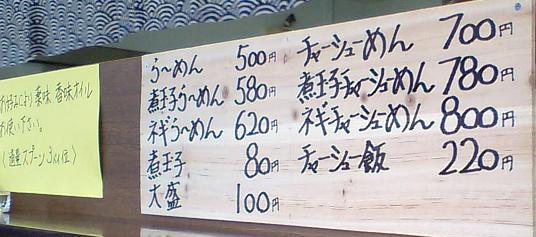 お好みにより薬味 香味オイル
お使い下さい。
(適量スプーン3cc位)
らーめん 500円
煮玉子らーめん 580円
ネギらーめん 620円
煮玉子 80円
大盛 100円
チャーシューめん 700円
煮玉子チャーシューめん 780円
ネギチャーシューめん 800円
チャーシュー飯 220円